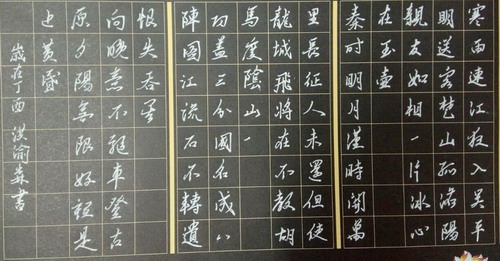 寒雨連江夜入吳平
明送客楚山孤洛陽
親友如相一片冰心
在玉壺
秦時明月漢時關萬
里長征人未還但使
龍城飛將在不教胡
馬度陰山
功蓋三分國名成八
陣圖江流石不轉遺
恨失吞吳
向晚意不車登古
原夕陽無限好是
近黃昏
歲在丁酉 洪渝書